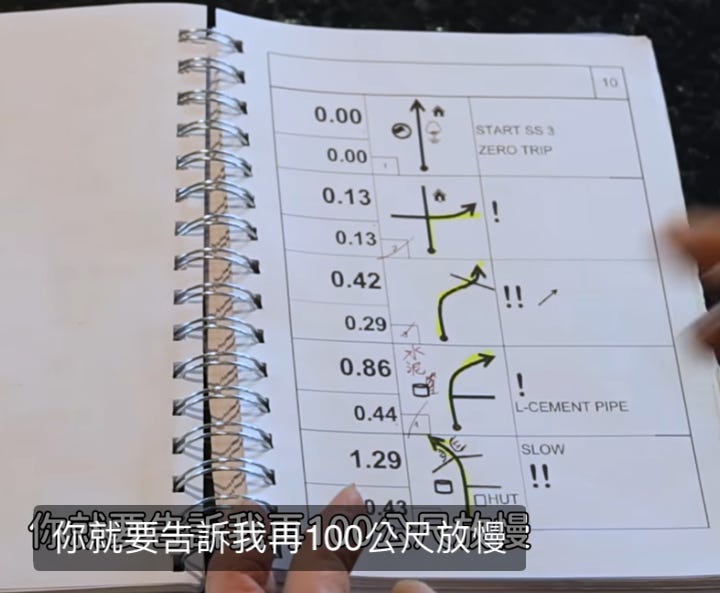 10
0.00
START SS 3
0.00
ZERO TRIP
1
0.13
!
0.13
2
0.42
!!
0.29
0.86
水泥
!
0.44
L-CEMENT PIPE
4
1.29
SLOW
!!
0.43
HUT
你就要告訴我再100公尺放慢